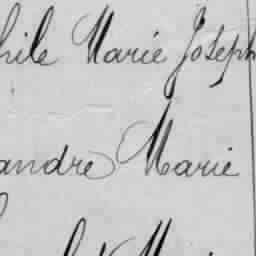 hile Marie Joseph
andre Marie